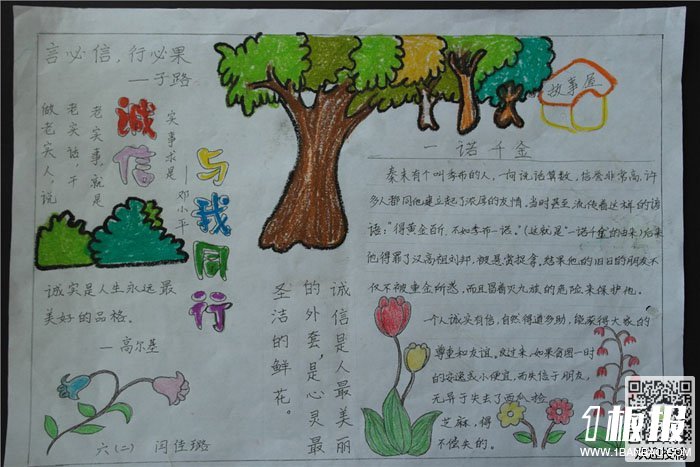 言必信，行必果
—子路
诚信
与我同行
做老实人，说
老实话，干
老实事，就是
实事求是
—邓小平
诚实是人生永远最
美好的品格。
—高尔基
六(二) 闫佳璐
诚信是人最美丽
的外套，是心灵最
圣洁的鲜花。
故事屋
一诺千金
秦末有个叫季布的人，一向说话算数，信誉非常高，许
多人都同他建立起了浓厚的友情。当时甚至流传着这样的谚
语："得黄金百斤，不如季布一诺。"(这就是"一诺千金"的由来)后来
他得罪了汉高祖刘邦，被悬赏捉拿。结果他的旧日的朋友不
仅不被重金所惑，而且冒着灭九族的危险来保护他。
一个人诚实有信，自然得道多助，能获得大家的
尊重和友谊。反过来，如果贪图一时
的安逸或小便宜，而失信于朋友，
无异于失去了西瓜捡
芝麻，得
不偿失的。
板报
WWW.1BANBAO.COM